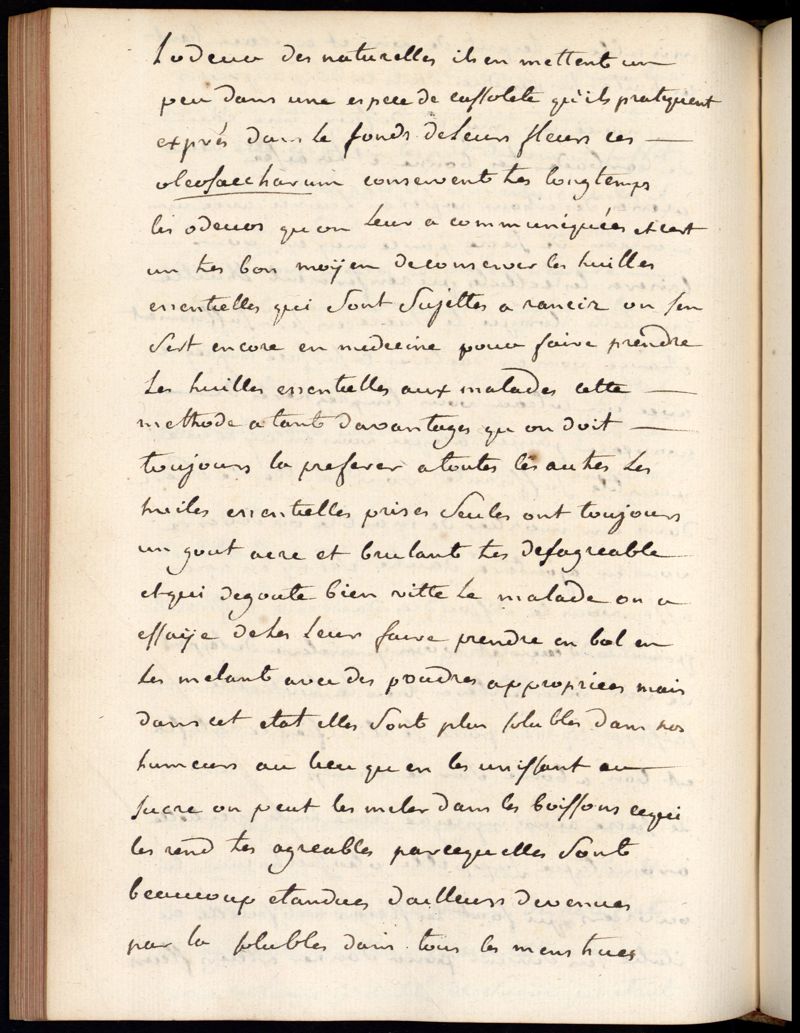 Lodeur des naturelles ils en mettent un
peu dans une espece de cassolete qu'ils pratiquent
exprés dans le fonds de Leurs fleurs ces —
oleosaccharum conservent tres longtemps
les odeurs qu on Leur a communiquées et cest
un tres bon moÿen de conserver les huilles
essentielles qui sont sujettes a rancir on sen
sert encore en medecine pour faire prendre
Les huilles essentielles aux malades cette —
methode a tant davantages qu on doit —
toujours la preferer a toutes les autres Les
huiles essentielles prises seules ont toujours
un gout acre et brulant tres desagreable
et qui degoute bien vitte Le malade on a
essaÿe de Les Leur faire prendre en bol en
Les melant avec des poudres appropriées mais
dans cet etat elles sont plus solubles dans nos
humeurs au lieu qu en les unissant au
sucre on peut les meler dans les boissons ce qui
les rend tres agreables parce quelles sont
beaucoup etandues dailleurs devenues
par la solubles dans tous les menstrues